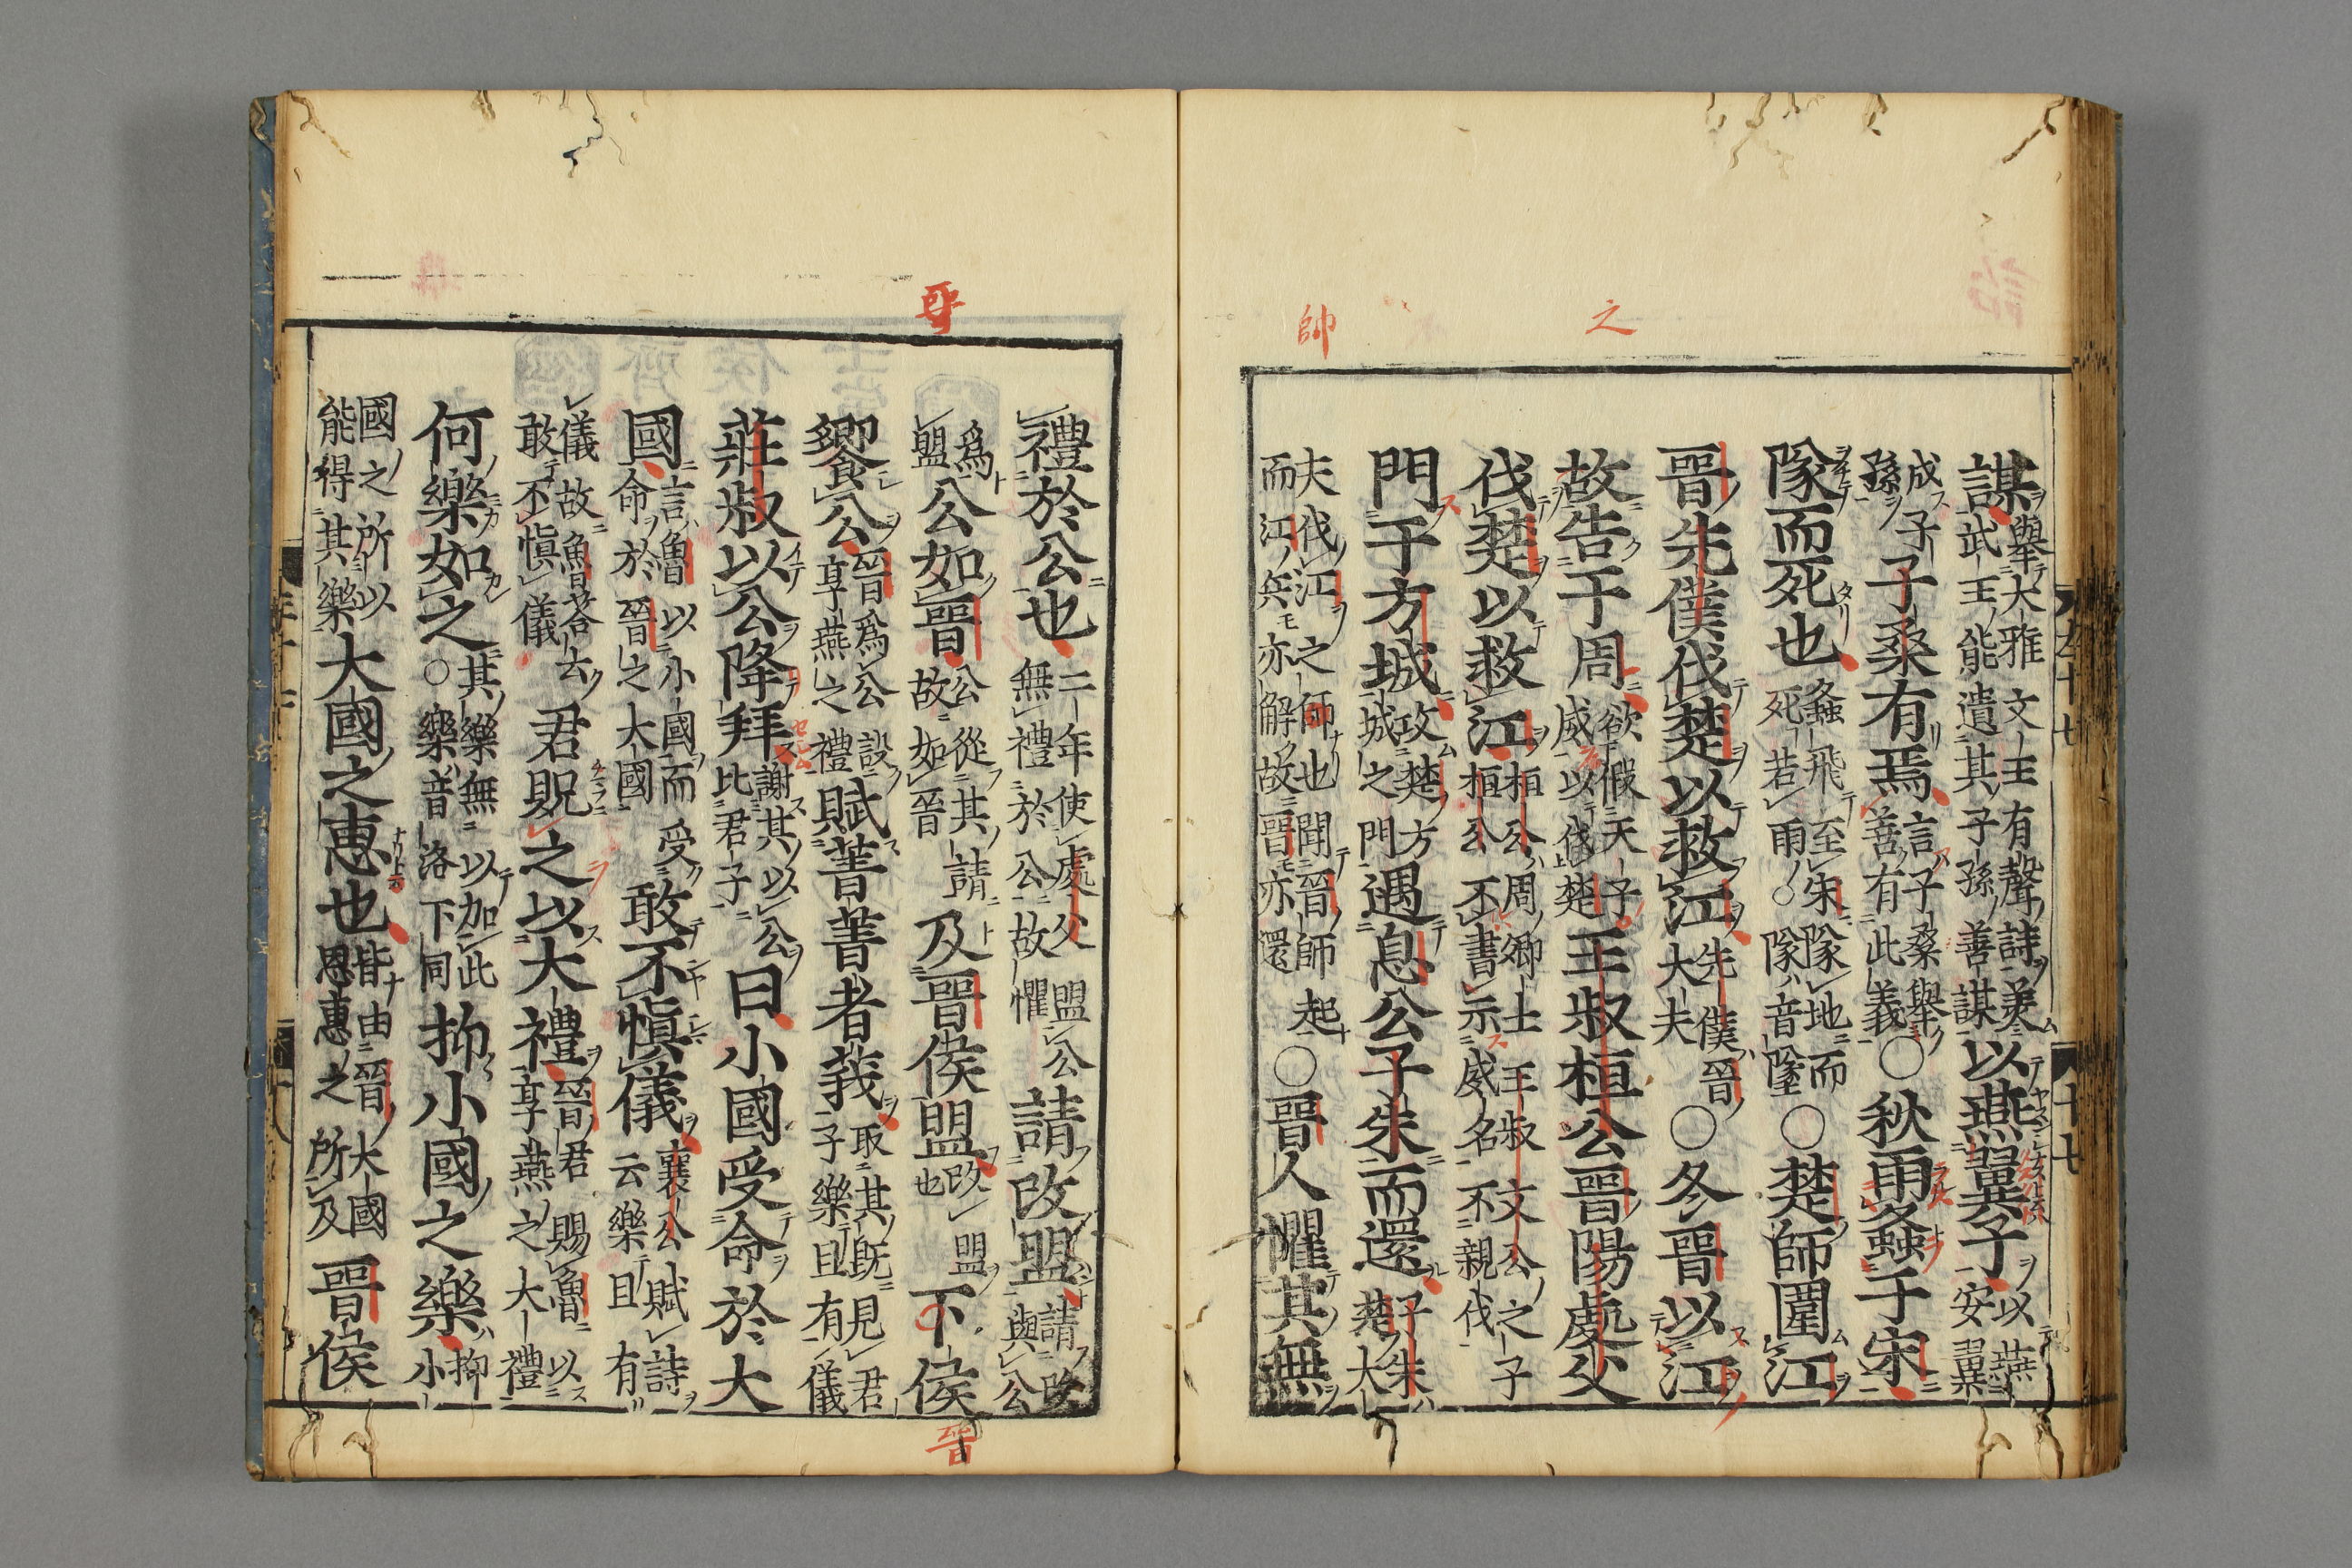 之
帥
謀擧大雅文王有聲詩美武王能遺其子孫善謀以燕翼子以燕安翼
成子孫子桑有焉言子桑擧善有此義○秋雨螽于宋
隊而死也螽飛至朱隊地而死若雨○隊音墜○楚師圍江
晉先僕伐楚以救江先僕晉大夫○冬晉以江
故告于周欲假天子威以伐楚王叔桓公晉陽處父
伐楚以救江桓公周卿士王叔文公之子桓公不書示威名不親伐
門于方城攻楚方城之門遇息公子朱而還子朱楚大
夫伐江之師也聞晉師起而江兵亦解故晉亦還○晉人懼其無
晉
禮於公也二年使處父盟公無禮於公故懼請改盟請改與公
爲盟公如晉公從其請故如晉及晉侯盟改盟也下侯
晉
饗公晉爲公設享燕之禮賦菁菁者莪取其旣見君子樂且有儀
莊叔以公降拜謝其以公比君子曰小國受命於大
國言魯以小國而受命於晉之大國敢不慎儀襄公賦詩云樂且有
儀故魯荅云敢不慎儀君貺之以大禮晉君賜魯以享燕之大禮
何樂如之其樂無以加此○樂音洛下同抑小國之樂抑小
國之所以能得其樂大國之惠也皆由晉大國恩惠之所及晉侯